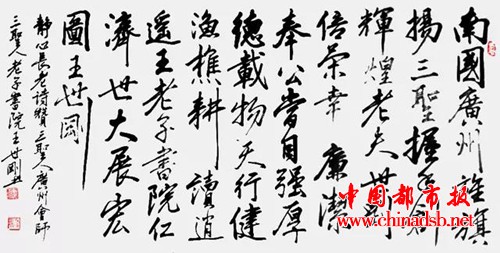 南國廣州旗
揚三聖握手創
輝煌老夫世剛
倍榮幸 廉潔
奉公當自強厚
德載物天行健
漁樵耕讀逍
遙王老子書院仁
濟世大展宏
圖王世剛
靜心長老詩贊三聖人廣州會師
三聖人老子書院王世剛書
中国都市报
www.chinadsb.net